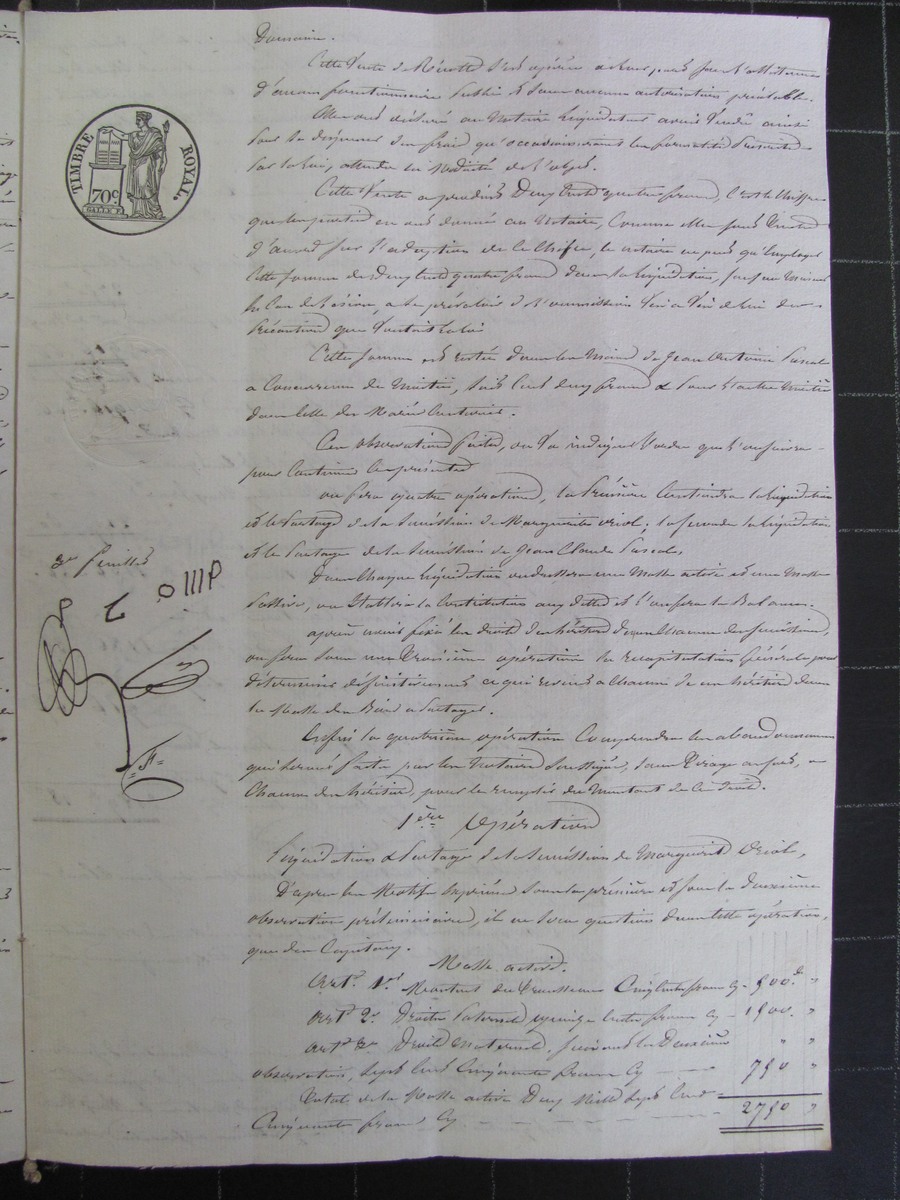 Domaine.
Cette Vente de Récolte s'est opérée
d'aucun fonctionnaire public & sans aucune autorisation préalable.
Elles ont déclaré au Notaire liquidateur avoir Vendu ainsi
pour les frais qu'occasionneraient les formalités Prescrites
par la loi, attendu la Modicité de l'objet.
Cette Vente a produit Deux Cent quatre francs, C'est le chiffre
que les parties en ont donné au Notaire, Comme elles sont
d'accord sur l'adoption de ce Chiffre, le notaire
Cette somme de deux Cent quatre francs dans la liquidation,
TIMBRE ROYAL.
70c.
Cette somme est restée dans les Mains de Jean Antoine Pascal
a Concurrence de Moitié, soit Cent deux francs & pour l'autre Moitié
dans celle de Marie Antoinette.
Ces observations faites, on Va indiquer l'ordre que l'on suivra
pour Continuer les présentes
on fera quatre opérations, la Première Contiendra la liquidation
et le Partage de la Succession de Marguerite Oriol, la seconde la liquidation
et le Partage de la Succession de Jean Claude Pascal.
Dans Chaque liquidation on dressera une Masse active et une Masse
Passive, on Etablira la Contribution aux dettes et l'on fera la Balance.
3e feuillet
Après avoir fixé les droits des héritiers dans Chacune des successions,
on fera dans une Troisième opération la récapitulation Générale pour
déterminer définitivement ce qui revient a Chacun de ces héritiers dans
la Masse des Biens a Partager.
Enfin la quatrième opération Comprendra les abandonnements
qui seront faits par les Notaires Soussignés, sans Tirage au sort, a
Chacun des héritiers, pour le remplir du Montant de ses droits.
1ère Opération
Liquidation & Partage de la Succession de Marguerite Oriol,
D'après les Motifs Exprimés dans la première et dans la deuxième
observations préliminaires, il ne sera question dans cette opération,
que des Capitaux.
Masse active.
Art. 1er Montant du Trousseau Cinq Cents francs Cy 500. "
Art. 2e Droits Paternels quinze Cents francs Cy 1500. "
Art. 3e Droits Maternels, suivant la Deuxième " "
observation, Sept Cent Cinquante francs Cy 750 "
Total de la Masse active Deux Mille Sept Cent
Cinquante francs Cy 2750 "